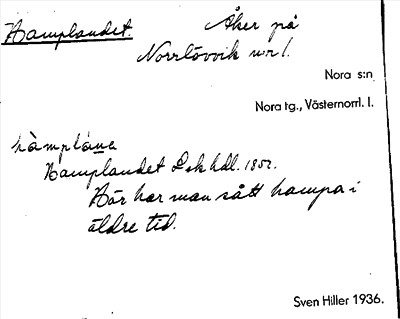 Hamplandet. Åker på
Norrlövvik nr 1.
Nora s:n
Nora tg., Västernorrl. l.
hàmpláne
Hamplandet Lsk hdl. 1852.
Här har man sått hampa i
äldre tid.
Sven Hiller 1936.